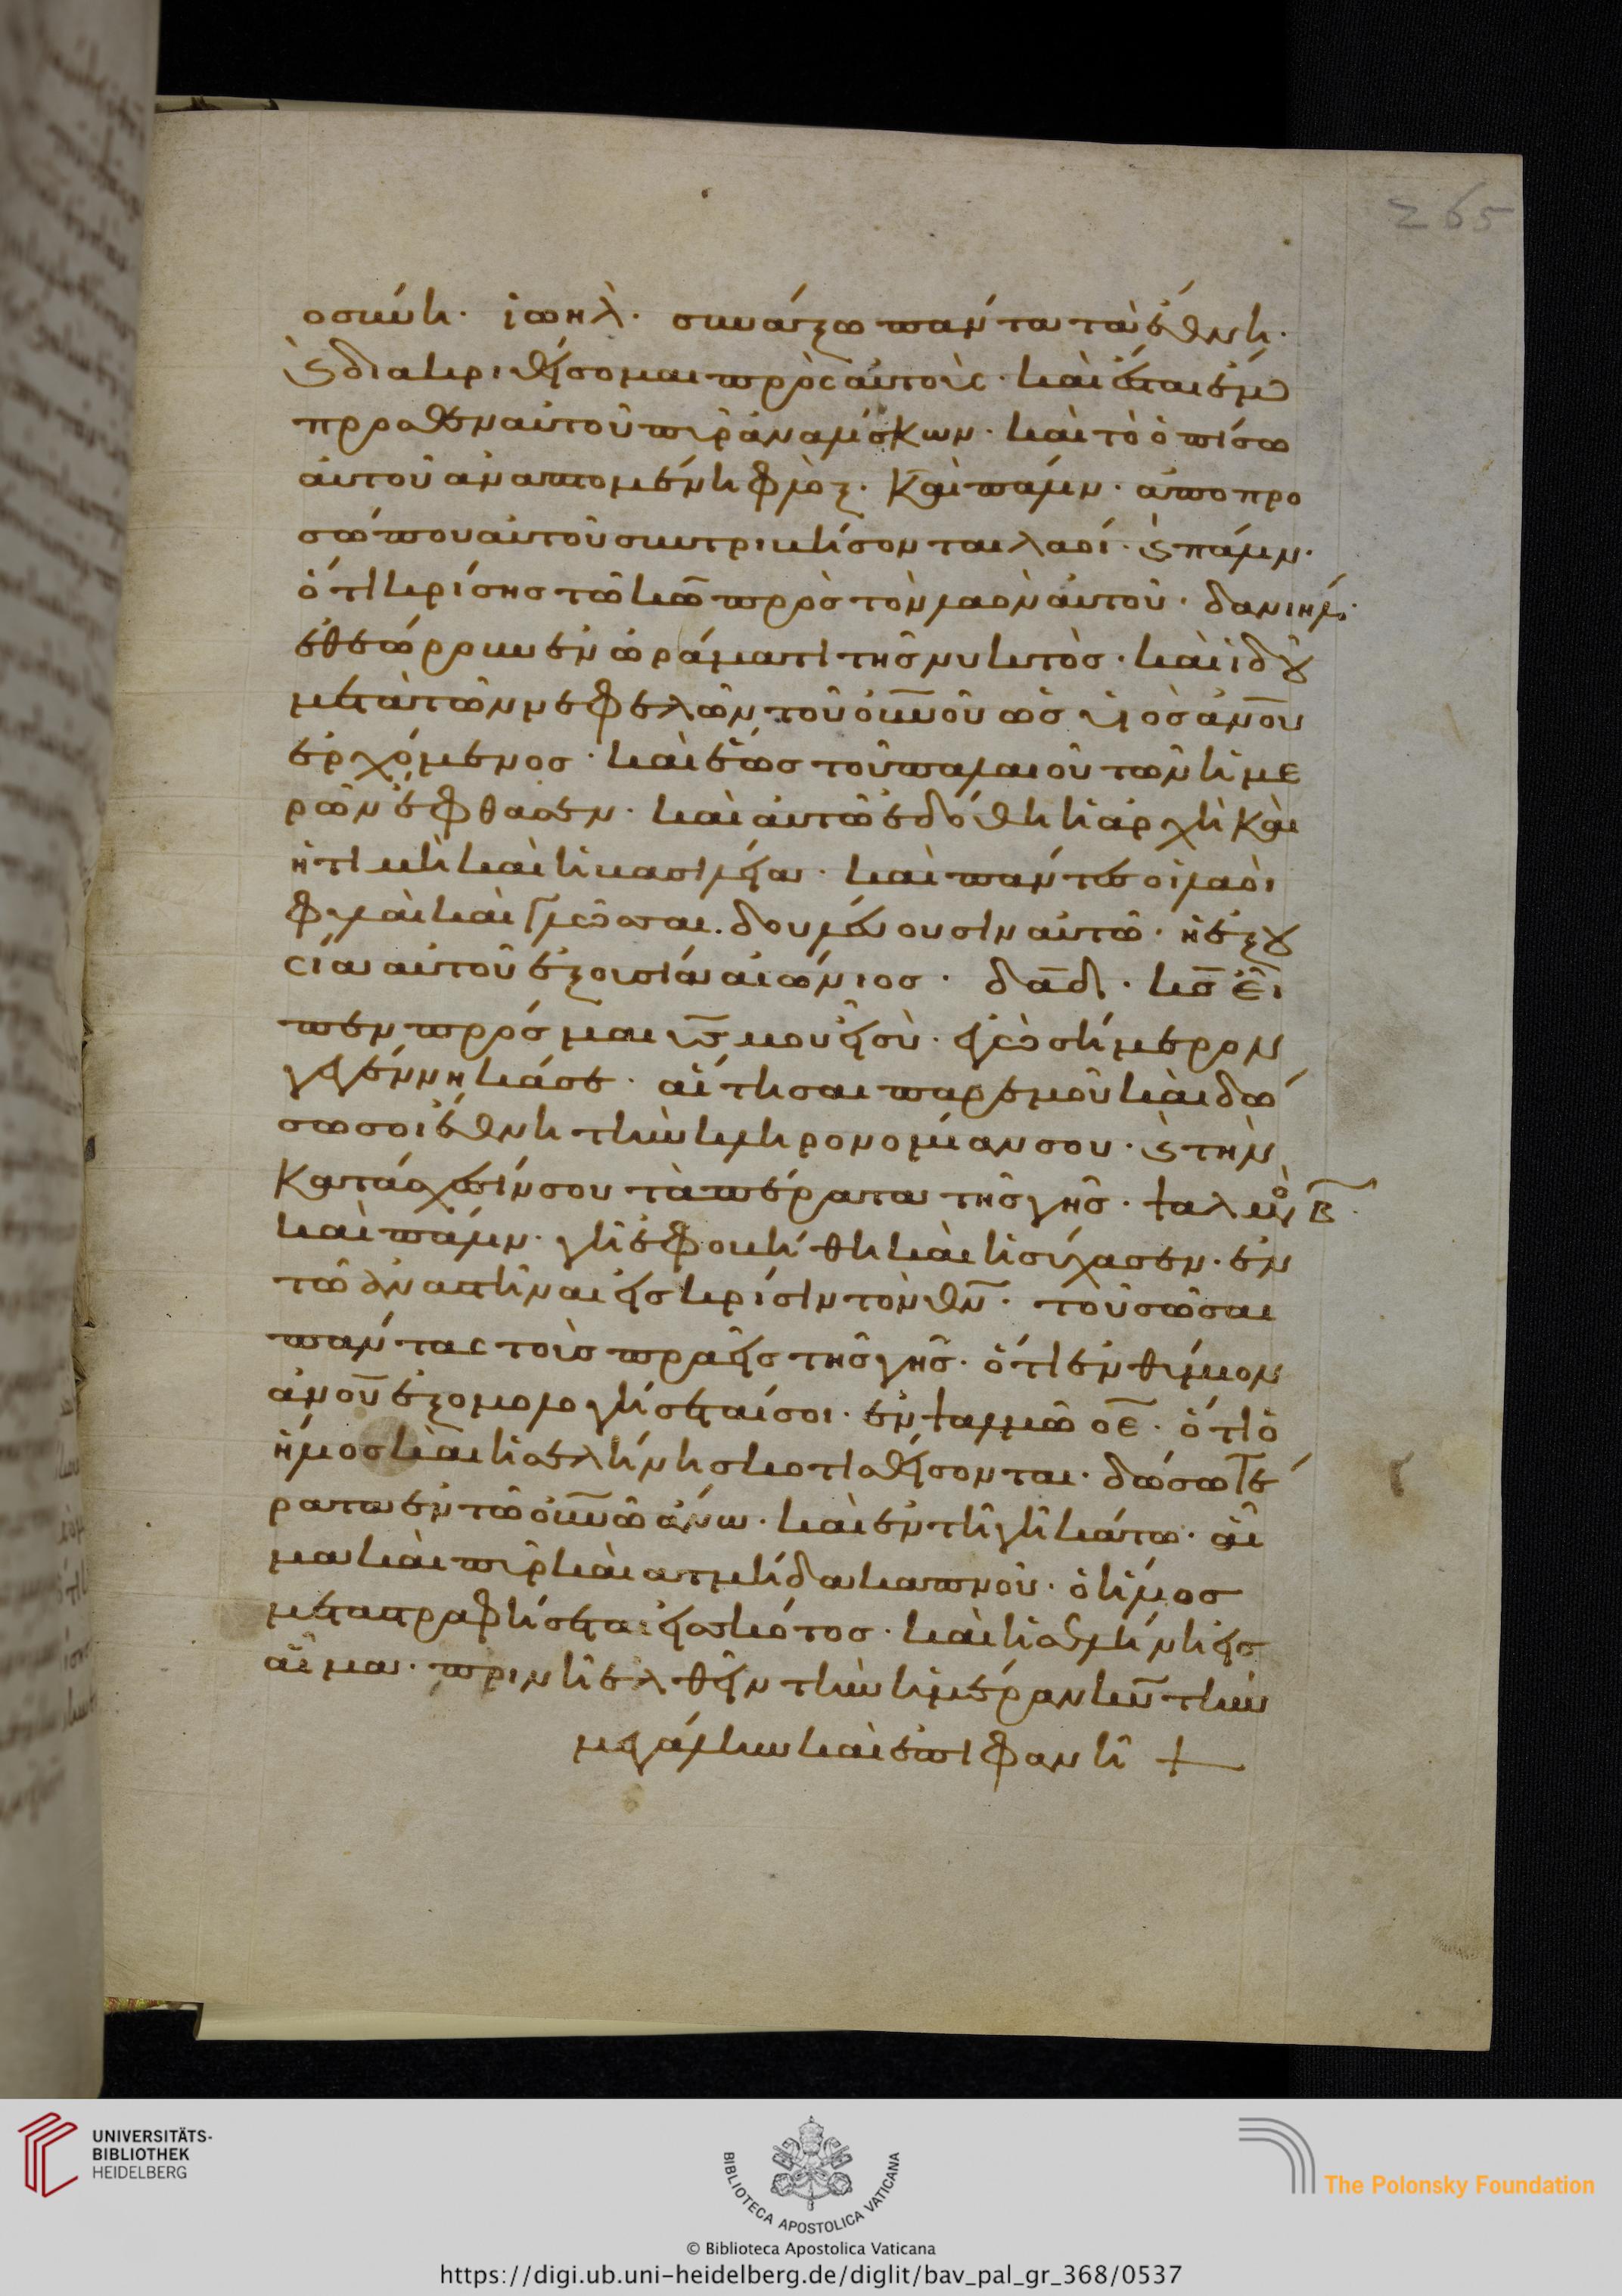 265
οσκύνη. ἰωὴλ. συνάξω πάντα τὰ ἔθνη.
καὶ διακριθήσομαι πρὸς αὐτοὺς. καὶ
πῦρ ἀναλίσκων. καὶ τὸ ὀπίσω
αὐτοῦ ἀναπτομένη φλόξ. καὶ πάλιν. ἀπο προ
σώπου αὐτοῦ συντριβήσονται λαοί. καὶ πάλιν.
ὅτι κρίσης τῶ κω πρὸς τὸν λαὸν αὐτοῦ. δανιήλ.
ἐθεώρρουν ἐν ὡράματι τῆς νυκτὸς. καὶ ἰδοὺ
μετὰ τῶν νεφελῶν τοῦ οὐνοῦ ὡς υἱὸς ἀνου
ἐρχόμενος. καὶ ἕως τοῦ παλαιοῦ τῶν ἡμε
ρῶν ἔφθασεν. καὶ αὐτῶ ἐδόθη ἡ ἀρχὴ καὶ
ἡ τιμὴ καὶ ἡ βασιλεία. καὶ πάντες οἱ λαοὶ
φυλαὶ καὶ γλῶσσαι. δουλεύουσιν αὐτῶ. ἡ ἐξου
σία αὐτοῦ ἐξουσία αἰώνιος. δαδ. κς εἶ
πεν πρός μαι υς μου εἶ σὺ. ἐγὼ σήμερον
γεγέννηκά σε. αἴτησαι παρ ἐμοῦ καὶ δώ
σω σοι ἔθνη τὴν κληρονομίαν σου. καὶ τὴν
κατάσχεσίν σου τὰ πέρατα τῆς γῆς. β
καὶ πάλιν. γῆ ἐφοβήθη καὶ ἡσύχασεν. ἐν
τῶ ἀναστῆναι εἰς κρίσιν τὸν θν. τοῦ σῶσαι
πάντας τοὺς πραεῖς τῆς γῆς. ὅτι ἐνθύμιον
ἀνου ἐξομολογήσεταί σοι. ἐν ψαλμῶ οε. ὅτι ὁ
ἥλιος καὶ ἡ σελήνη σκοτισθήσονται. δώσω τέ
ρατα ἐν τῶ οὐνῶ ἄνω. καὶ ἐν τῆ γῆ κάτω. αἷ
μα καὶ πῦρ καὶ ατμήδα καπνοῦ. ὁ ἥλιος
μεταστραφήσεται εἰς σκότος. καὶ ἡ σελήνη εἰς
αἷμα. πριν ἢ ἐλθεῖν τὴν ἡμέραν κυ τὴν
μεγάλην καὶ ἐπιφανῆ +
UNIVERSITÄTS-
BIBLIOTHEK
HEIDELBERG
BIBLIOTECA APOSTOLICA VATICANA
The Polonsky Foundation
© Biblioteca Apostolica Vaticana
https://digi.ub.uni-heidelberg.de/diglit/bav_pal_gr_368/0537